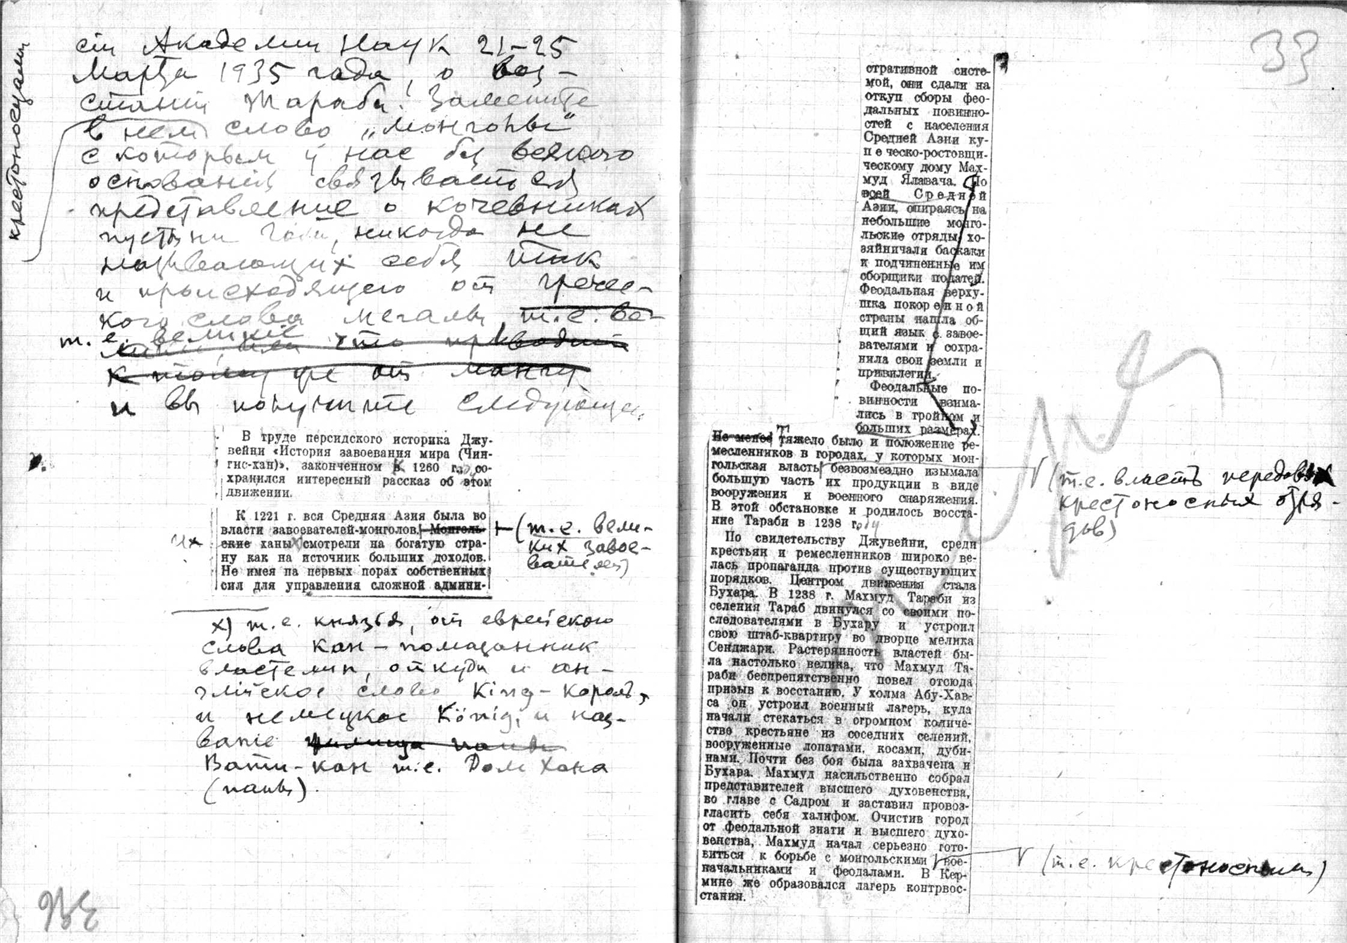 крестоносцами
сіи Академии Наук 21–25
Марта 1935 года, о воз-
стании Тараби. Замените
в нем слово „монголы"
с которым у нас без всякого
основания связывается
представление о кочевниках
пустыни Гоби, никогда не
называющих себя так
и происходящего от гречес-
кого слова мегалы т.е. ве-
т.е. великие
что приводит
к тому же от
и вы получите следующее.
В труде персидского историка Джу-
вейни «История завоевания мира (Чин-
гис-хан)», законченном в 1260 г., со-
хранился интересный рассказ об этом
движении.
К 1221 г. вся Средняя Азия была во
власти завоевателей-монголов. Монголь-
ские ханы смотрели на богатую стра-
ну как на источник больших доходов.
Не имея на первых порах собственных
сил для управления сложной админи-
их
(т.е. вели-
ких завое-
вателей)
х) т.е. князья, от еврейского
слова Кан – помазанник
властелин, откуда и ан-
глійское слово King – король,
и немецкое König, и наз-
вание
Вати-кан т.е. Дом Хана
(папы).
33
стративной систе-
мой, они сдали на
откуп сборы фео-
дальных повинно-
стей с населения
Средней Азии ку-
печеско-ростовщи-
ческому дому Мах-
муд Ялавача. По
всей Средней
Азии, опираясь на
небольшие монго-
льские отряды, хо-
зяйничали баскаки
и подчиненные им
сборщики податей.
Феодальная верху-
шка покоренной
страны нашла об-
щий язык с завое-
вателями и сохра-
нила свои земли и
привилегии.
Феодальные по-
винности взима-
лись в тройном и
больших размерах.
Не менее тяжело было и положение ре-
месленников в городах, у которых мон-
гольская власть безвозмездно изымала
большую часть их продукции в виде
вооружения и военного снаряжения.
В этой обстановке и родилось восста-
ние Тараби в 1238 году
По свидетельству Джувейни, среди
крестьян и ремесленников широко ве-
лась пропаганда против существующих
порядков. Центром движения стала
Бухара. В 1238 г. Махмуд Тараби из
селения Тараб двинулся со своими по-
следователями в Бухару и устроил
свою штаб-квартиру во дворце мелика
Сенджари. Растерянность властей бы-
ла настолько велика, что Махмуд Та-
раби беспрепятственно повел отсюда
призыв к восстанию. У холма Абу-Хав-
са он устроил военный лагерь, куда
начали стекаться в огромном количе-
стве крестьяне из соседних селений,
вооруженные лопатами, косами, дуби-
нами. Почти без боя была захвачена и
Бухара. Махмуд насильственно собрал
представителей высшего духовенства,
во главе с Садром и заставил провоз-
гласить себя халифом. Очистив город
от феодальной знати и высшего духо-
венства, Махмуд начал серьезно гото-
виться к борьбе с монгольскими вое-
начальниками и феодалами. В Кер-
мине же образовался лагерь контрвос-
стания.
(т.е. власть передовых
крестоносных отря-
дов)
(т.е. крестоносными)